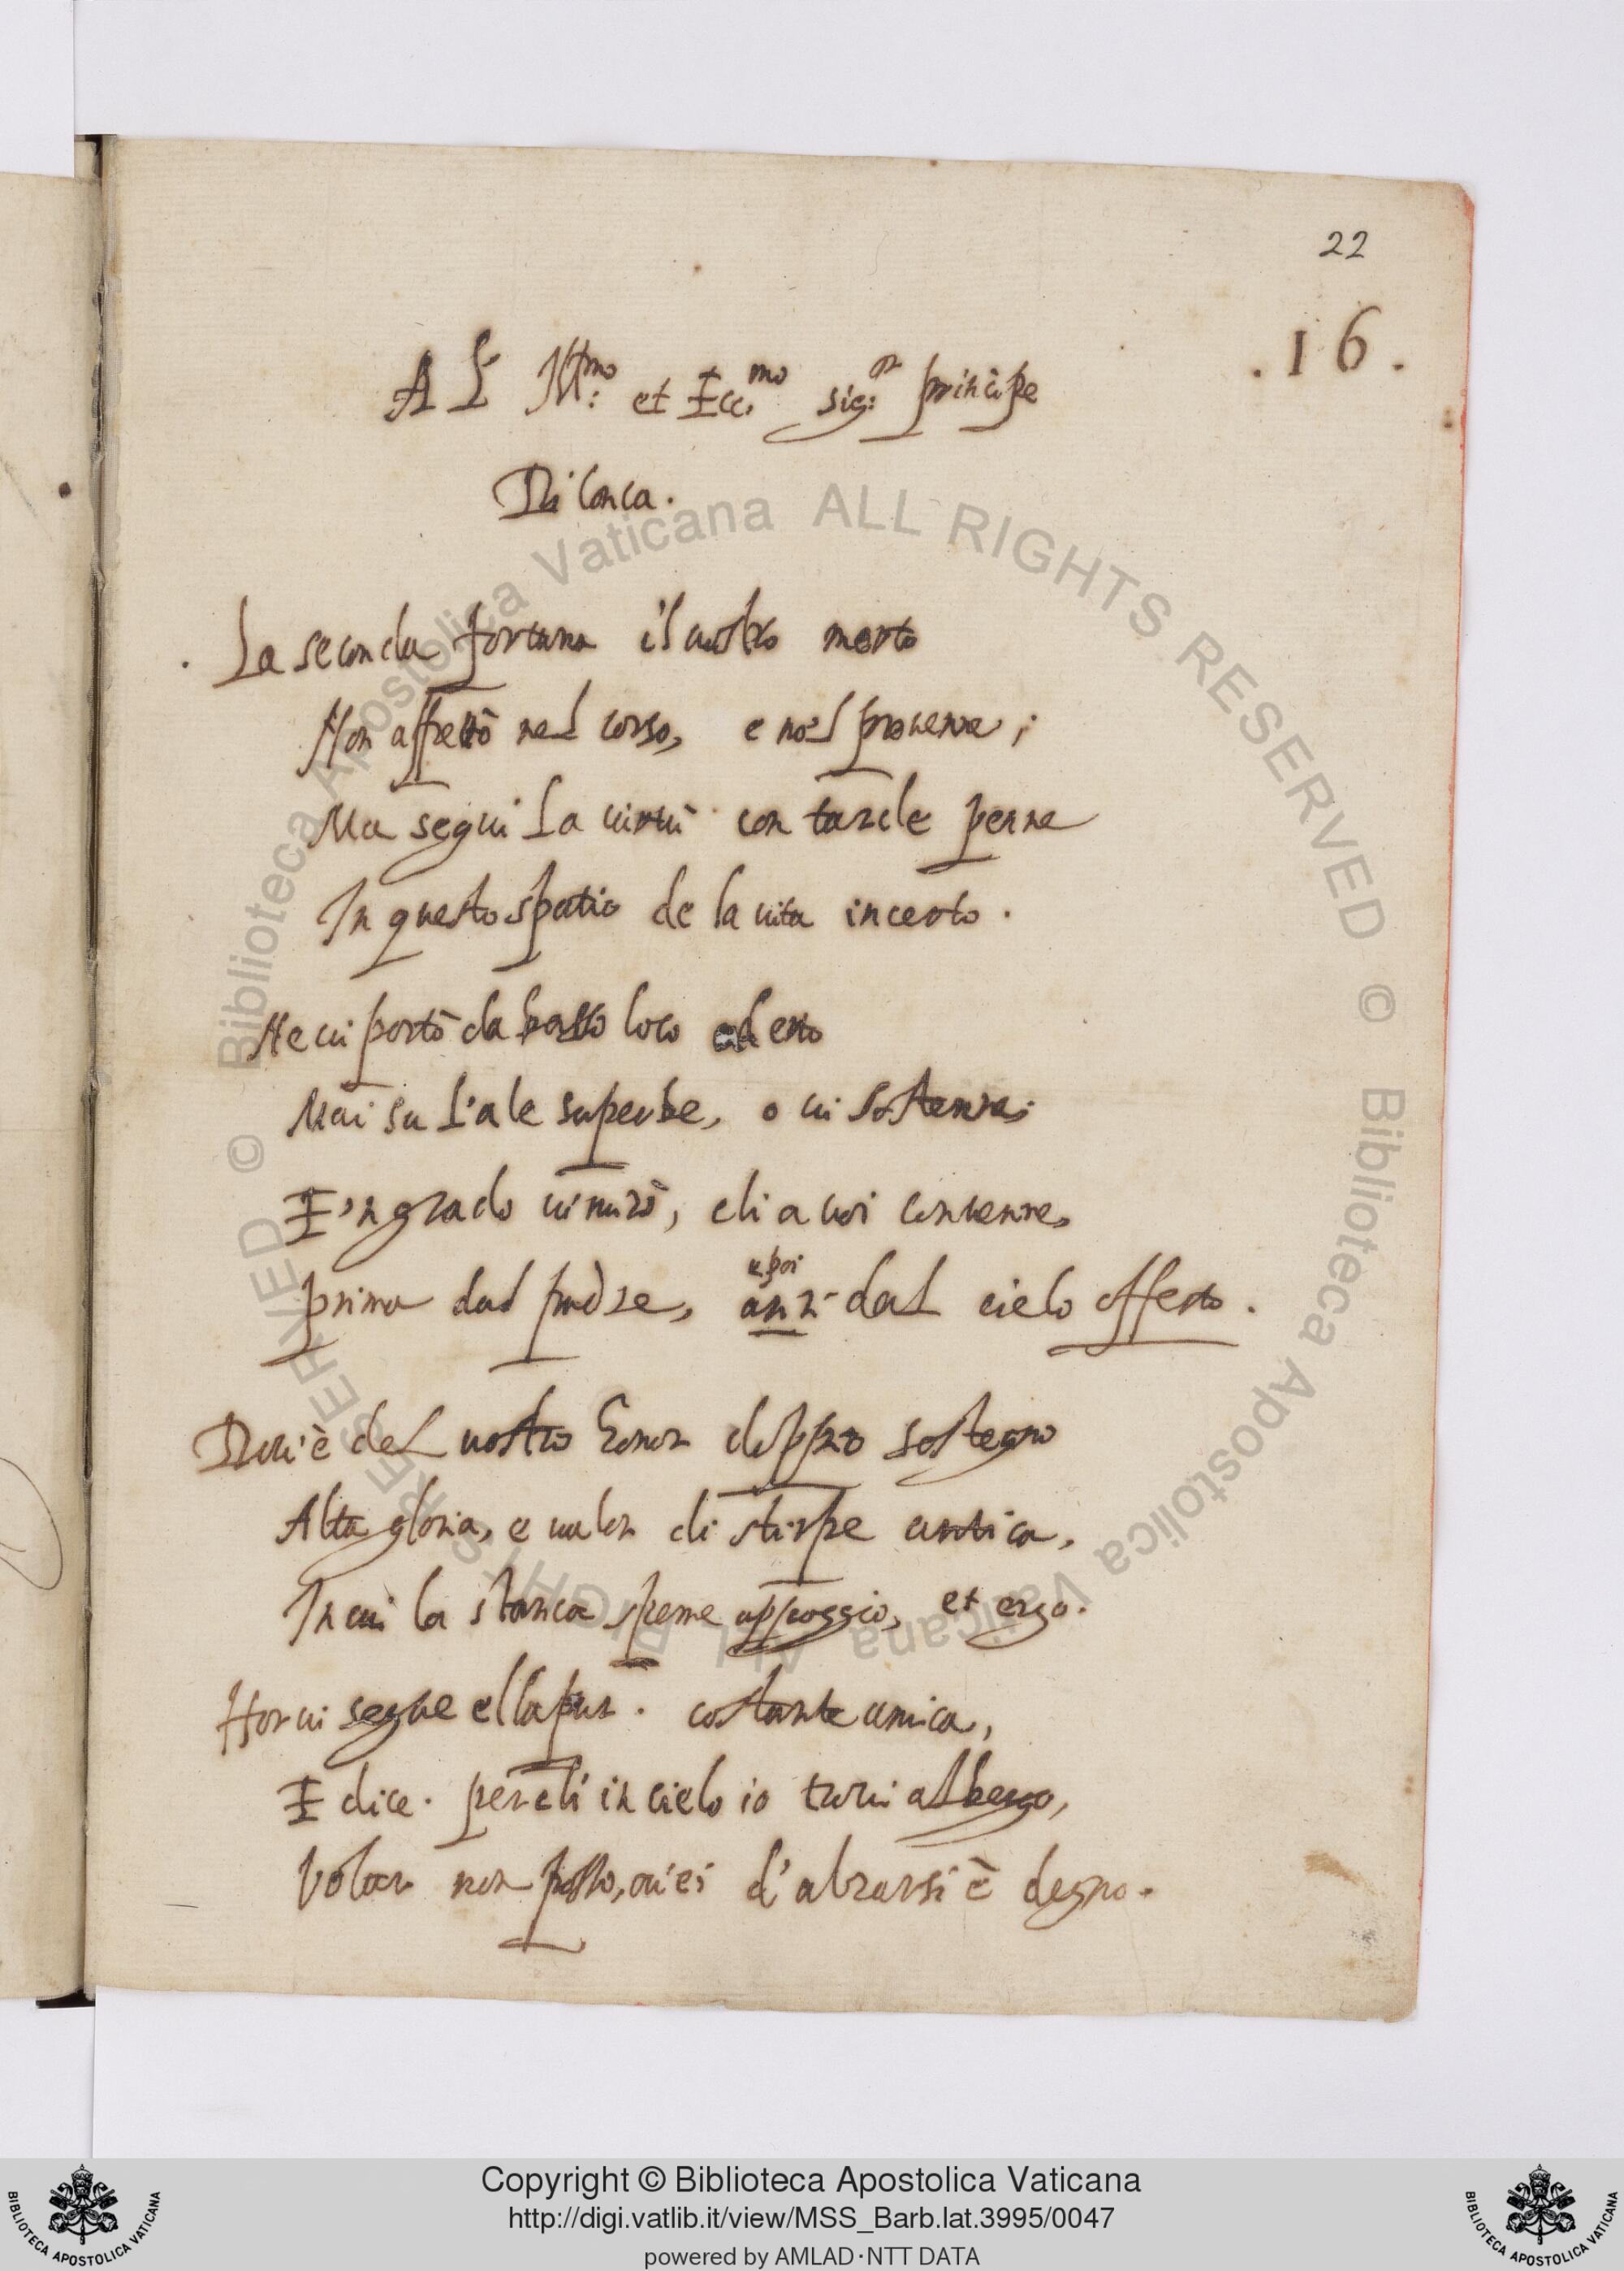 22
.16.
Al Ill:mo et Ecc.mo sig:or principe
Di Conca.
La seconda fortuna il uostro merto
Non affrettò nel corso, e nol preuenne;
Ma seguì la uirtù con tarde penne
In questo spatio de la uita incerto.
Ne ui portò da basso loco ad erto
Mai su l'ale superbe, o ui sostenne;
E 'n grado ui mirò, ch'a uoi conuenne,
e poi
Prima dal padre, anzi dal cielo offerto.
Dou'è del uostro honor doppio sostegno
Alta gloria, e ualor di stirpe antica,
In cui la stanca speme appoggio, et ergo.
Hor ui segue ella pur. costante amica,
E dice. perch'i' in cielo io troui albergo,
Volar non posso, ou'ei d'alzarsi è degno.
© Biblioteca Apostolica Vaticana ALL RIGHTS RESERVED © Biblioteca Apostolica Vaticana ALL RIGHTS RESERVED
Copyright © Biblioteca Apostolica Vaticana
http://digi.vatlib.it/view/MSS_Barb.lat.3995/0047
powered by AMLAD·NTT DATA
BIBLIOTECA APOSTOLICA VATICANA
BIBLIOTECA APOSTOLICA VATICANA